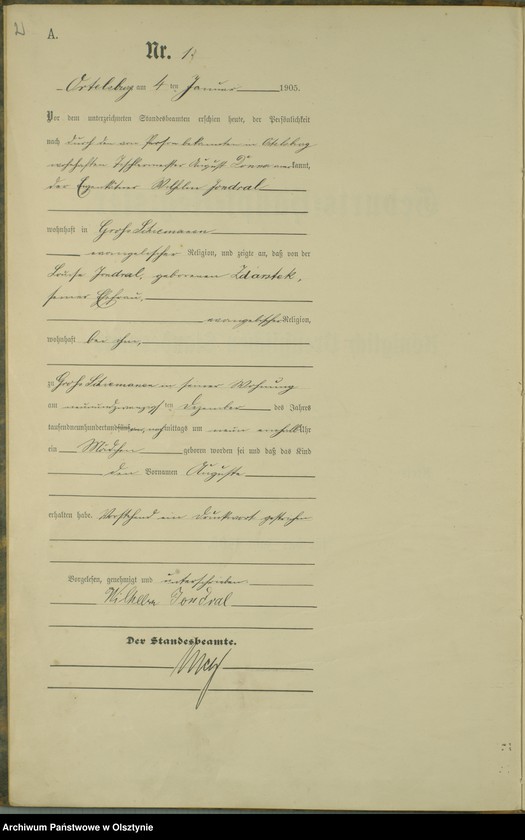 A.
Nr. 1.
Ortelsburg am 4 ten Januar 1905.
Vor dem unterzeichneten Standesbeamten erschien heute, der Persönlichkeit
nach durch den von Person bekannten in Ortelsburg
wohnhaften Tischlermeister August kannt,
der Eigenkätner Wilhelm Jondral
wohnhaft in Groß Schiemanen
evangelischer Religion, und zeigte an, daß von der
Louise Jondral, geborenen Zdarstek,
seiner Ehefrau,
evangelischer Religion,
wohnhaft bei ihm,
zu Groß Schiemanen in seiner Wohnung
am neunundzwanzigsten Dezember des Jahres
tausendneunhundert vier, nachmittags um neun einhalb Uhr
ein Mädchen geboren worden sei und daß das Kind
den Vornamen Auguste
erhalten habe. Vorstehend ein Druckwort gestrichen
Vorgelesen, genehmigt und unterschrieben
Wilhelm Jondral
Der Standesbeamte.
Archiwum Państwowe w Olsztynie